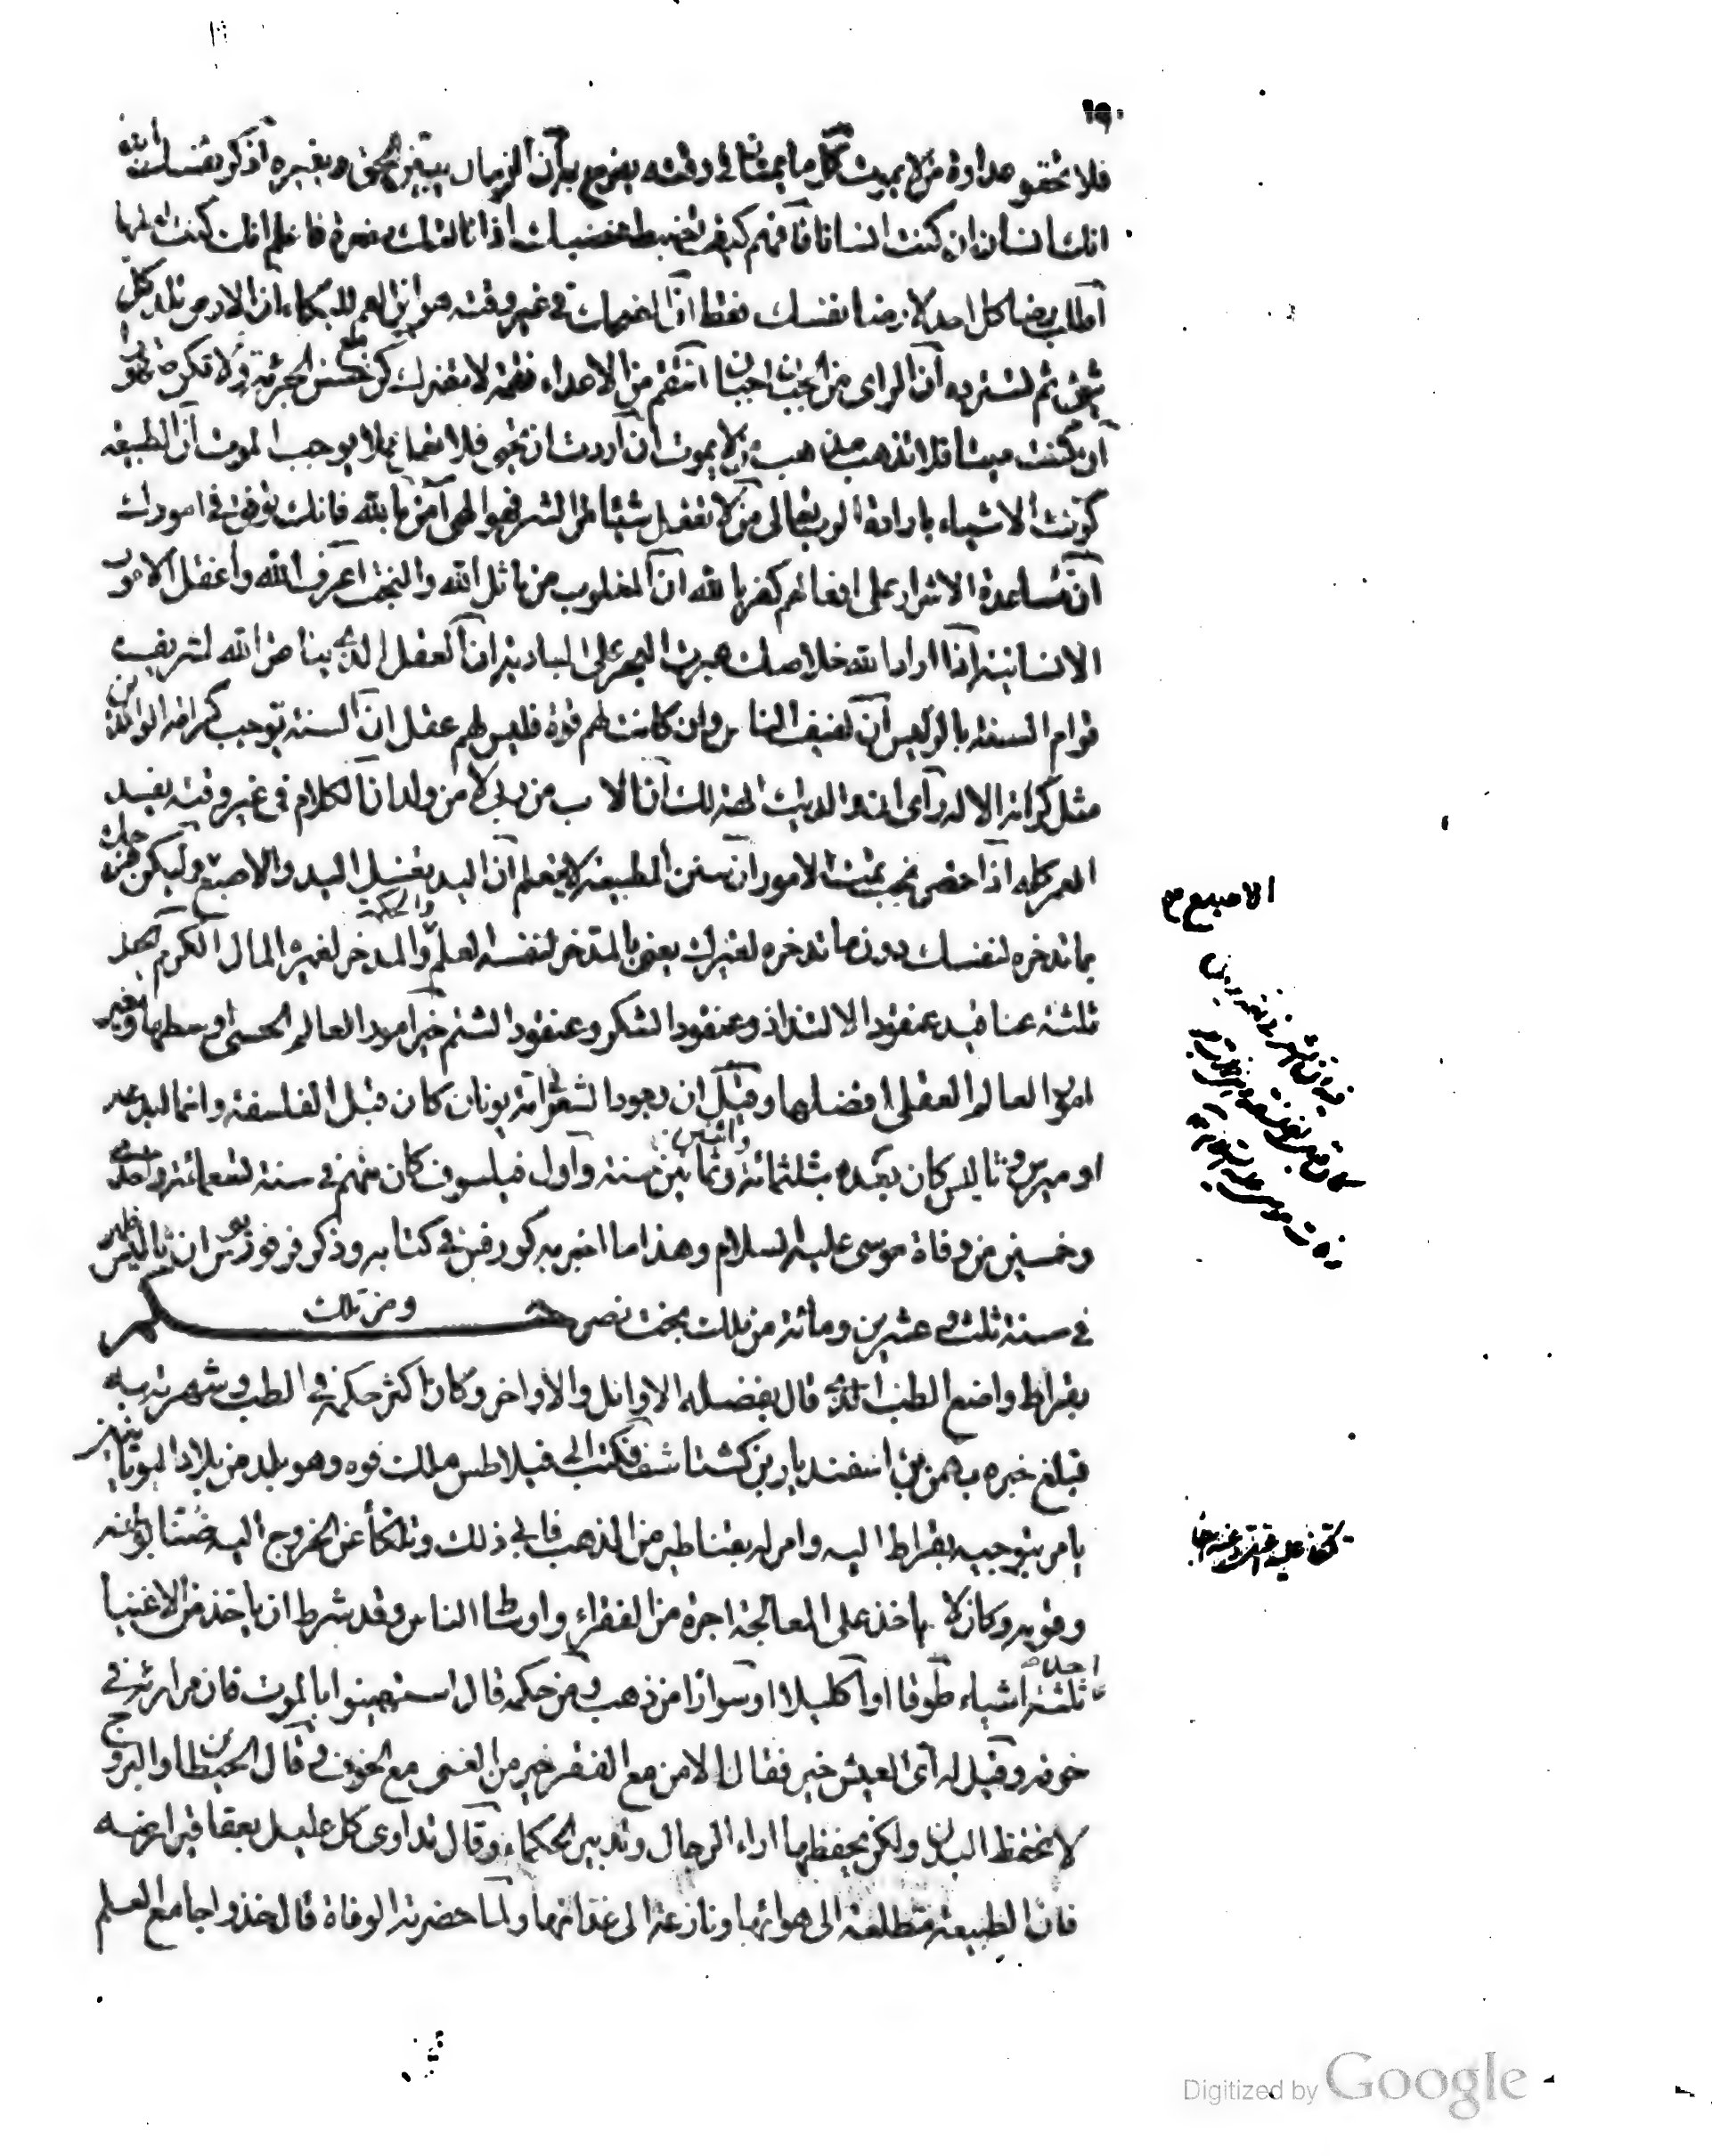 ١٩٠
فلا تحقر عداوة من لا يموت كل ما يختار في وقته يفرح به ان الزمان يبين الحق وينيره اذكر نفسك ابدا
انك انسان ان كنت انسانا فافهم كيف تضبط غضبك اذا نالتك مضرة فاعلم انك كنت اهلها
اطلب رضا كل احد لا رضا نفسك فقط ان الضحك في غير وقته هو ابن عم البكاء ان الارض تلد كل
شئ ثم تسترده ان الراى من الجبان جبان انتقم من الاعداء نقمة لا تضرك كن مع حسن الجرأة ولا تكن متهورا
ان كنت ميتا فلا تذهب مذهب من لا يموت ان اردت ان تحيى فلا تعمل عملا يوجب الموت ان الطبيعة
كونت الاشياء بارادة الرب تعالى من لا يفعل شيئا من الشر فهو الهى آمن بالله فانك توفق في امورك
ان مساعدة الاشرار على افعالهم كفر بالله ان المغلوب من قاتل الله والبخت اعرف الله واعقل الامور
الانسانية اذا اراد الله خلاصك عبرت البحر على البادية ان العقل الذى يناطق الله لشريف
قوام السنة بالرئيس ان لفيف الناس وان كانت لهم قوة فليس لهم عقل ان السنة توجب كرامة الوالدين
مثل كرامة الاله راى ان والديك الهة لك ان الاب من ربى لا من ولد ان الكلام في غير وقته يفسد
العمر كله اذا حضر البخت تمت الامور ان سنن الطبيعة لا تتعلم ان اليد تغسل اليد والاصبع وليكن فرحك
بما تدخره لنفسك دون ما تدخره لغيرك يعنى بالمدخر لنفسه العلم والحكمة والمدخر لغيره المال الكرم يحمل
ثلثة عناقيد عنقود الالتذاذ وعنقود السكر وعنقود الشتم خير امور العالم الحسى اوسطها وخير
امور العالم العقلى افضلها وقيل ان وجود الشعر في امة يونان كان قبل الفلسفة وانما ابدعه
اوميرس وثاليس كان بعده بثلثمائة واثنين وثمانين سنة واول فيلسوف كان منهم في سنة تسعمائة واحدى
وخمسين من وفاة موسى عليه السلام وهذا ما اخبر به كورفس في كتابه وذكر فرفوريوس ان ثاليس ظهر
في سنة ثلث وعشرين ومائة من ملك بخت نصر ومن تلك حكم
بقراط واضع الطب الذى قال بفضله الاوائل والاواخر وكان اكثر حكمته في الطب وشهرته به
فبلغ خبره بهمن بن اسفنديار بن كشتاسف فكتب الى فيلاطس ملك قوه وهو بلد من بلاد اليونانيين
يامر بتوجيه بقراط اليه وامر له بقناطير من الذهب فابى ذلك وتلكأ عن الخروج اليه ضنا بوطنه
وقومه وكان لا ياخذ على المعالجة اجرة من الفقراء واوساط الناس وقد شرط ان ياخذ من الاغنيا
احد ثلثة اشياء طوقا او اكليلا او سوارا من ذهب ومن حكمه قال استهينوا بالموت فان مرارته في
خوفه وقيل له اى العيش خير فقال الامن مع الفقر خير من الغنى مع الخوف وقال الحيطان والبروج
لا تحفظ البلدان ولكن يحفظها اراء الرجال وتدبير الحكماء وقال تداوى كل عليل بعقاقير ارضه
فان الطبيعة متطلعة الى هوائها ونازعة الى غذائها ولما حضرته الوفاة قال خذوا جامع العلم
الاصبع
Digitized by Google